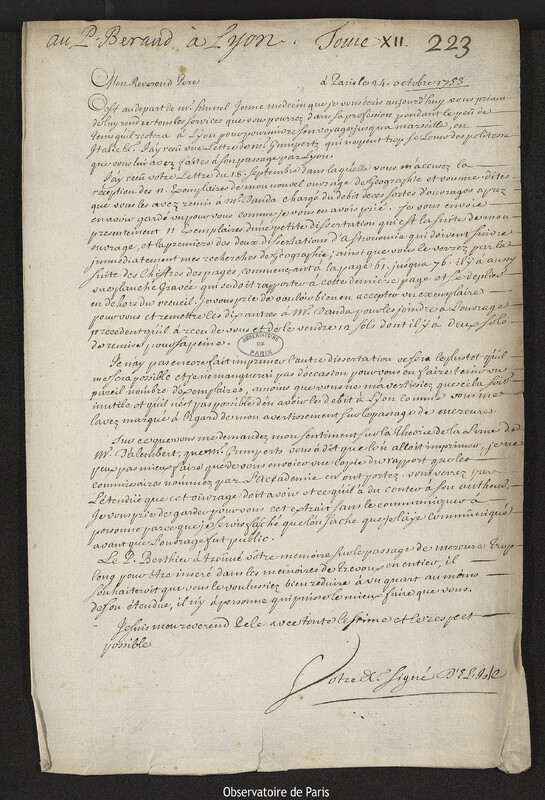 au P. Beraud à Lyon. Tome XII. 223
Mon Reverend Pere à Paris le 24 octobre 1753
C'est au depart de Mr. Jeune medecin que je vous écris aujourd'huy vous priant
de luy rendre tous les services que vous pourrez dans sa profession pendant le peu de
tems qu'il restera à Lyon pour poursuivre son voyage jusqua marseille, en
Italie &c. J'ay receu une Lettre de Mr. Gumpertz qui ne peut trop se Louer des politesses
que vous lui avez faites à son passage par Lyon.
J'ay receu votre Lettre du 16 Septembre dans laquelle vous m'accusez la
reception des 11 Exemplaires de mon nouvel ouvrage de Geographie et vous me dites
que vous les avez remis à Mr. Danda chargé du debit de ces sortes d'ouvrages aprez
en avoir gardé un pour vous comme je vous en avois prié. Je vous envoie
presentement 11 Exemplaires d'une petite dissertation qui est la suite de mon
ouvrage, et la premiere des deux dissertations d'Astronomie qui doivent suivre
immediatement mes recherches de Geographie; ainsi que vous le verrez par la
suite des chiffres des pages, commençant à la page 61. jusqua 76. il y a aussy
une planche Gravée qui se doit rapporter à cette derniere page et se deplier
en dehors du recueil. Je vous prie de vouloir bien en accepter un exemplaire
pour vous et remettre les dix autres à Mr. Danda pour les joindre à l'ouvrage
precedent qu'il a receu de vous et de le vendre 12 sols dont il y a deux sols
de remise pour sa peine.
OBSERVATOIRE DE PARIS
Je n'ay pas encore fait imprimer l'autre dissertation ce sera le plustot qu'il
me sera possible et je ne manquerai pas d'occasion pour vous en faire tenir un
pareil nombre d'exemplaires, amoins que vous ne m'avertissiez que cela soit
inutile et qu'il n'est pas possible d'en avoir le debit à Lyon comme vous me
l'avez marqué à l'égard de mon avertissement sur le passage de mercure.
Sur ce que vous me demandez mon sentiment sur la Theorie de la Lune de
Mr. D'alembert, que Mr. Gumperts vous a dit que l'on alloit imprimer, je ne
peux pas mieux faire que de vous envoier une copie du rapport que les
commissaires nommez par l'Academie en ont portez. vous verrez par
L'étendue que cet ouvrage doit avoir et ce qu'il a du conter à son autheur.
Je vous prie de garder pour vous cet extrait sans le communiquer à
personne parce que je serois faché que l'on sache que je l'aye communiqué
avant que l'ouvrage fut public.
Le P. Berthier a trouvé votre memoire sur le passage de mercure trop
long pour être inseré dans les memoires de Trevoux en entier, il
souhaiteroit que vous le voulussiez bien reduire à un quart au moins
de son étendue, il n'y a personne qui puisse le mieux faire que vous.
Je suis mon reverend Pere avec toute l'estime et le respect
possible
Votre &c. Signé D'El'Isle
Observatoire de Paris